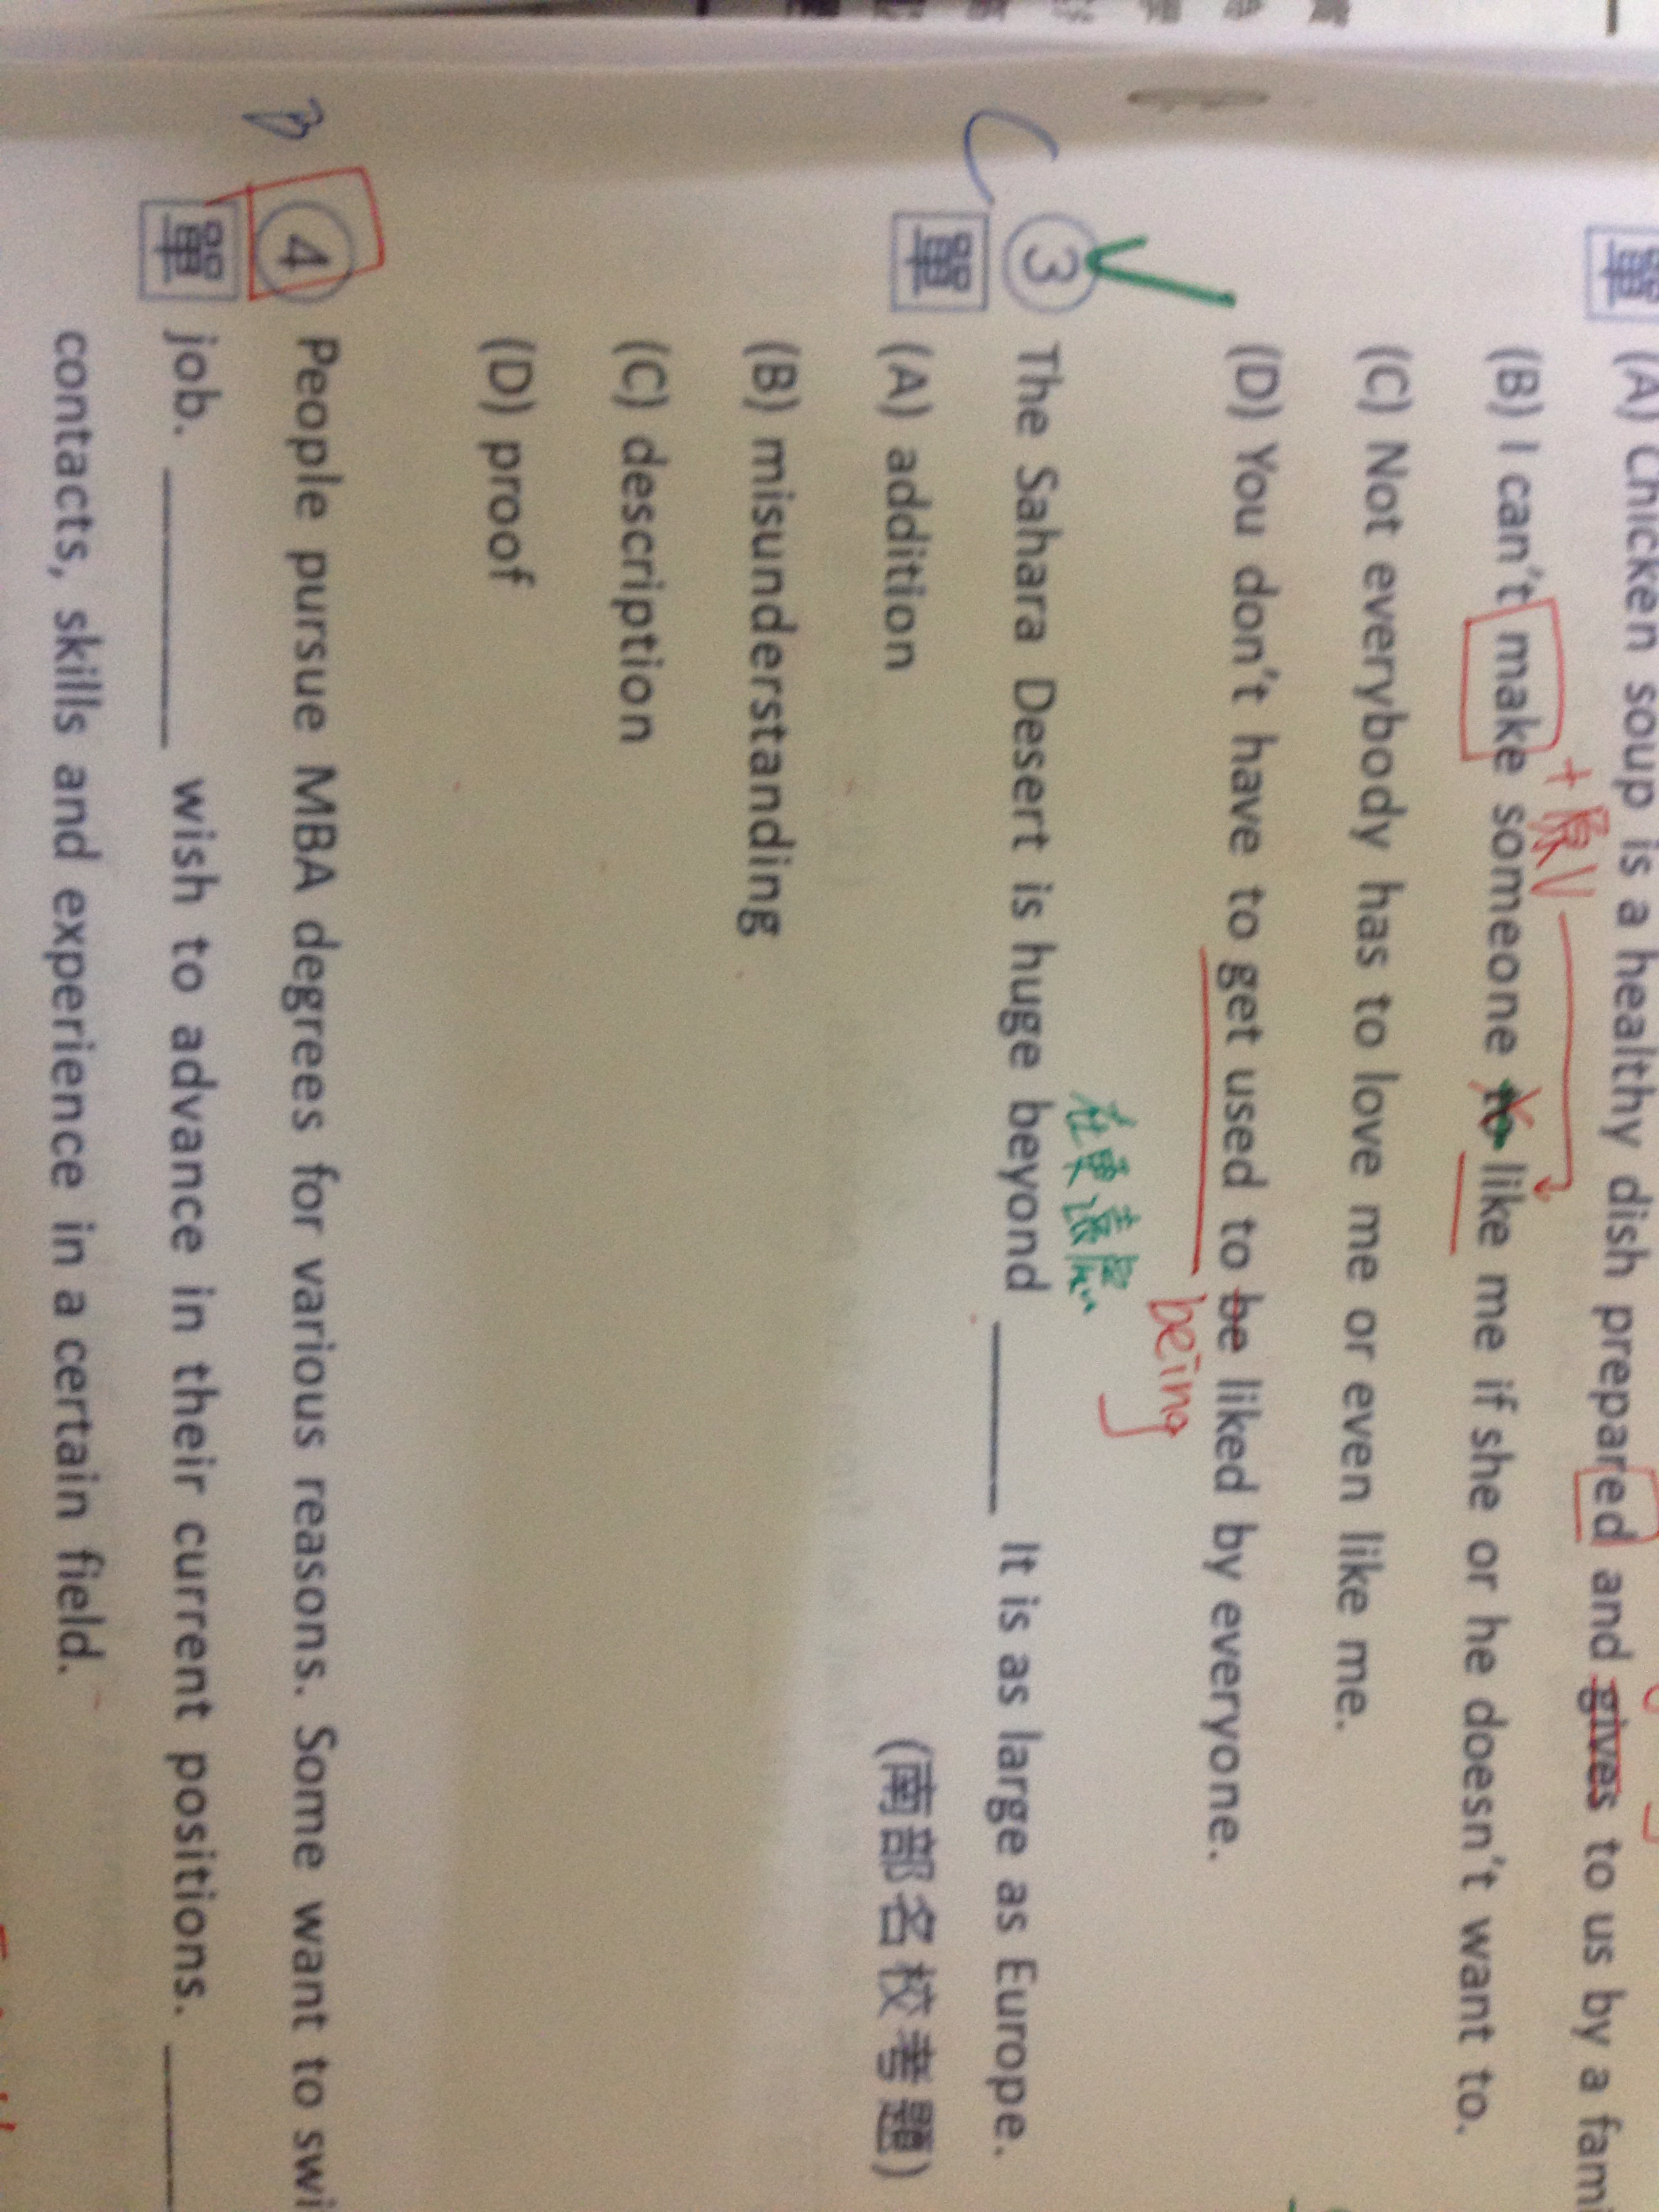 單 (A) Chicken soup is a healthy dish prepared and gives to us by a
+原V
(B) I can't make someone to like me if she or he doesn't want to.
(C) Not everybody has to love me or even like me.
(D) You don't have to get used to be liked by everyone.
being
在更遠處
C ③ The Sahara Desert is huge beyond ______ It is as large as Europe.
單 (A) addition (南部名校考題)
(B) misunderstanding
(C) description
(D) proof
B ④ People pursue MBA degrees for various reasons. Some want to
單 job. ________ wish to advance in their current positions. ____
contacts, skills and experience in a certain field.